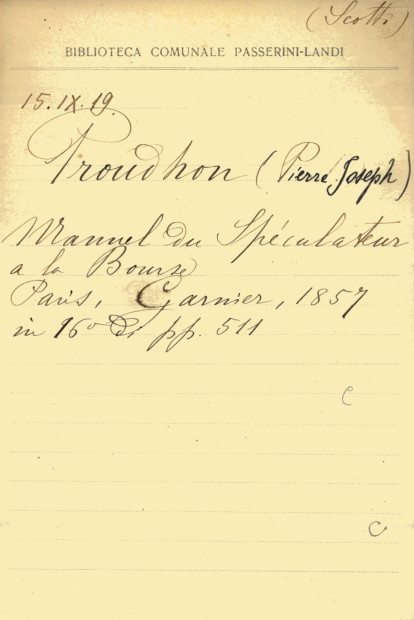 (Scotti)
BIBLIOTECA COMUNALE PASSERINI-LANDI
15.IX.19.
Proudhon (Pierre Joseph)
Manuel du Spéculateur
a la Bourse
Paris, Garnier, 1857
in 16° di pp. 511
C
C